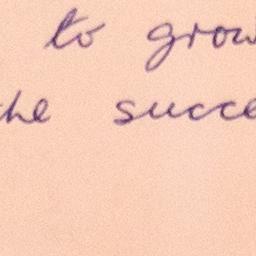 to grow
the succe